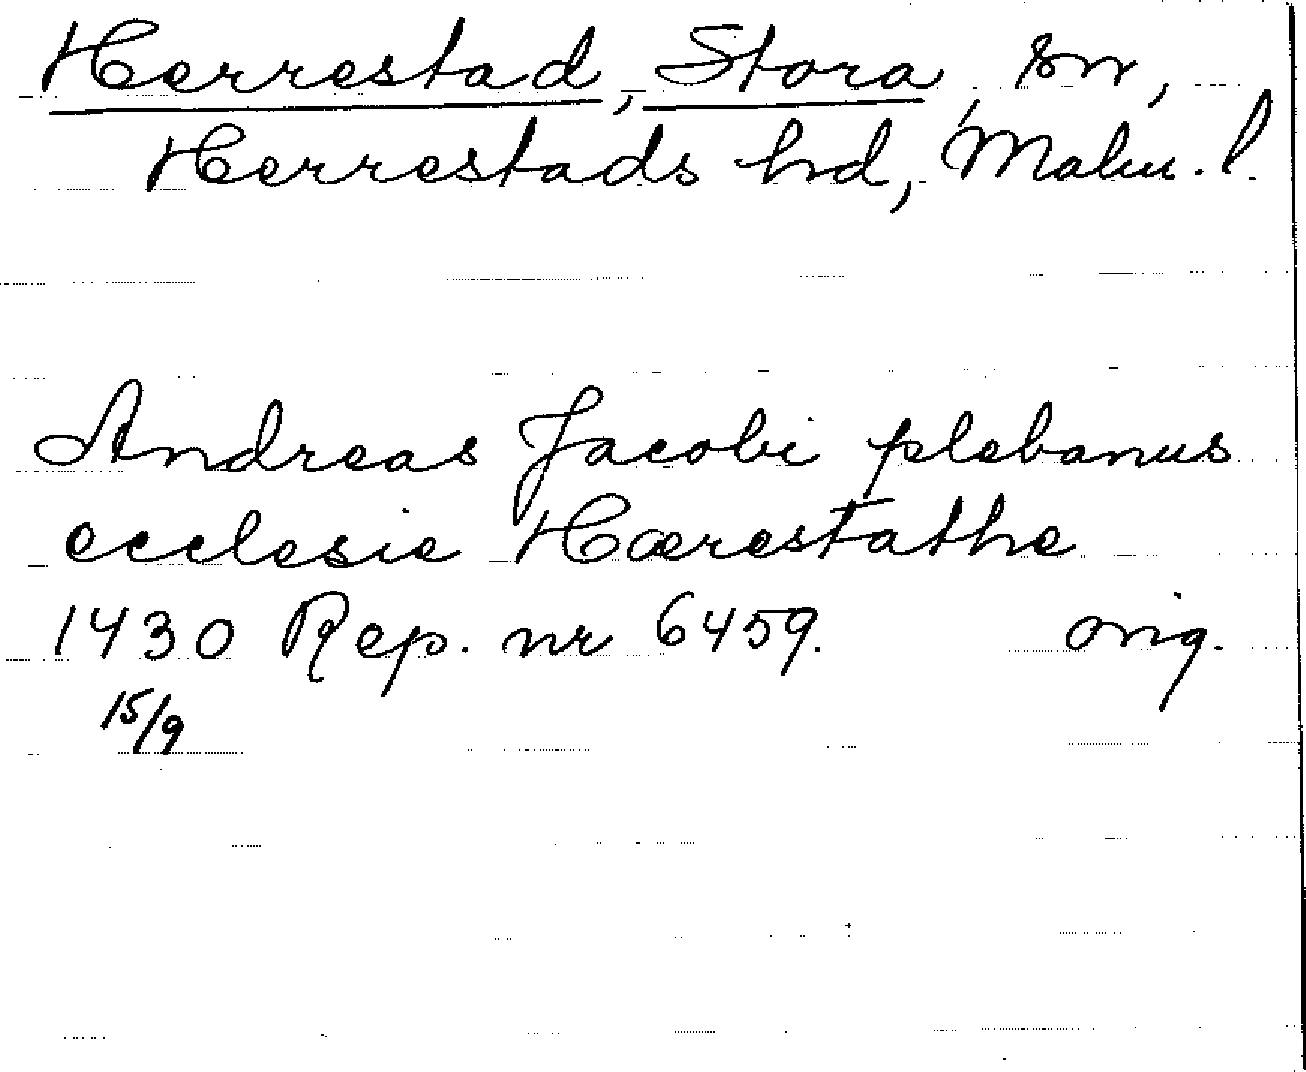 Herrestad, Stora, sn,
Herrestads hd, Malm. l.
Andreas Jacobi plebanus
ecclesie Hærestathe
1430 Rep. nr 6459. orig.
15/9